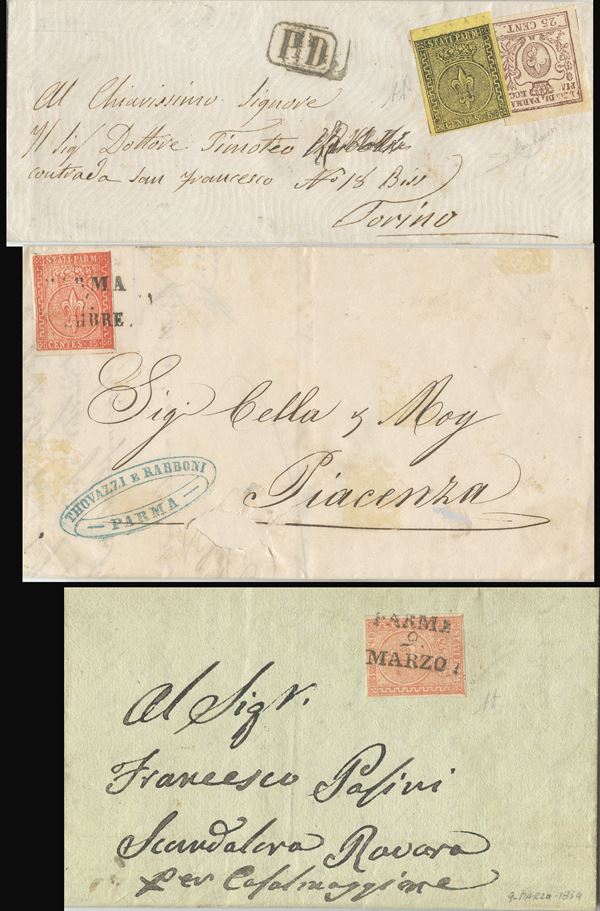 P.D.
STATI PARM.
CENTES. 5
25 CENT.
DI PARMA
Al Chiarissimo Signore
Il Sig Dottore Timoteo
contrada San Francesco No 18 Biss
Torino
STATI PARM.
CENTES. 15
MBRE
Sig. Cella & Moy
Piacenza
THOVAZZI E RABBONI
PARMA
PARMA
9
MARZO
Al Sigr.
Francesco Pasini
Scandolara Ravara
per Casalmaggiore
9-MARZO-1854